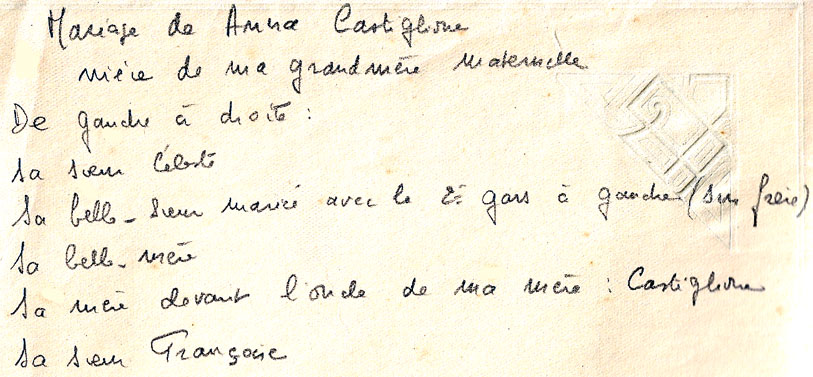 Mariage de Anna Castiglione
nièce de ma grandmère maternelle
De gauche à droite :
Sa sœur Céleste
Sa belle-sœur mariée avec le 2e gars à gauche (son frère)
Sa belle-mère
Sa mère devant l'oncle de ma mère : Castiglione
Sa sœur Françoise